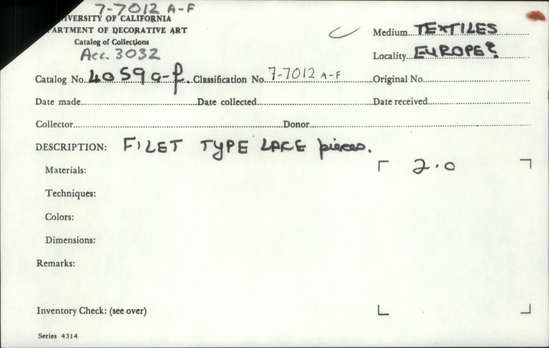 7-7012 A-F
VERSITY OF CALIFORNIA
PARTMENT OF DECORATIVE ART
Catalog of Collections
Acc. 3032
Medium TEXTILES
Locality EUROPE?
Catalog No. 4059 a-f Classification No. 7-7012 A-F Original No.
Date made Date collected Date received
Collector Donor
DESCRIPTION: FILET TYPE LACE pieces.
Materials: 2.0
Techniques:
Colors:
Dimensions:
Remarks:
Inventory Check: (see over)
Series 4314